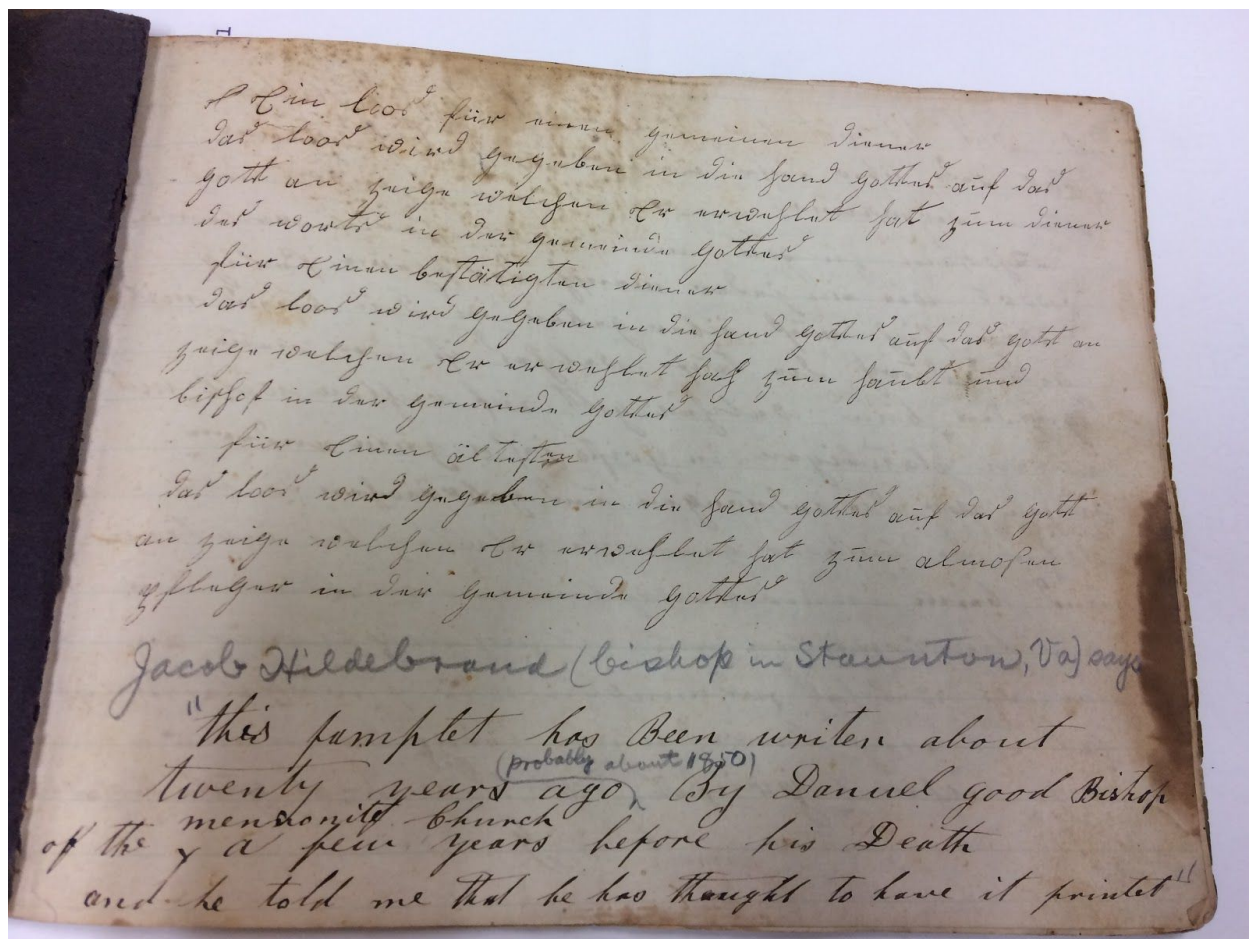 Ein loos für einen gemeinen diener
das loos wird gegeben in die hand gottes auf das
gott an zeige welchen Er erwehlet hat zum diener
des worts in der gemeinde gottes
für Einen bestätigten diener
das loos wird gegeben in die hand gottes auf das gott an
zeige welchen Er erwehlet hat zum haubt und
bischof in der gemeinde gottes
für Einen ältesten
das loos wird gegeben in die hand gottes auf das gott
an zeige welchen Er erwehlet hat zum almosen
pfleger in der gemeinde gottes
Jacob Hildebrand (bishop in Staunton, Va) says
"this pamplet has Been writen about
(probably about 1850)
twenty years ago By Danuel good Bishop
mennonite Church
of the a few years before his Death
and he told me that he has thaught to have it printet"